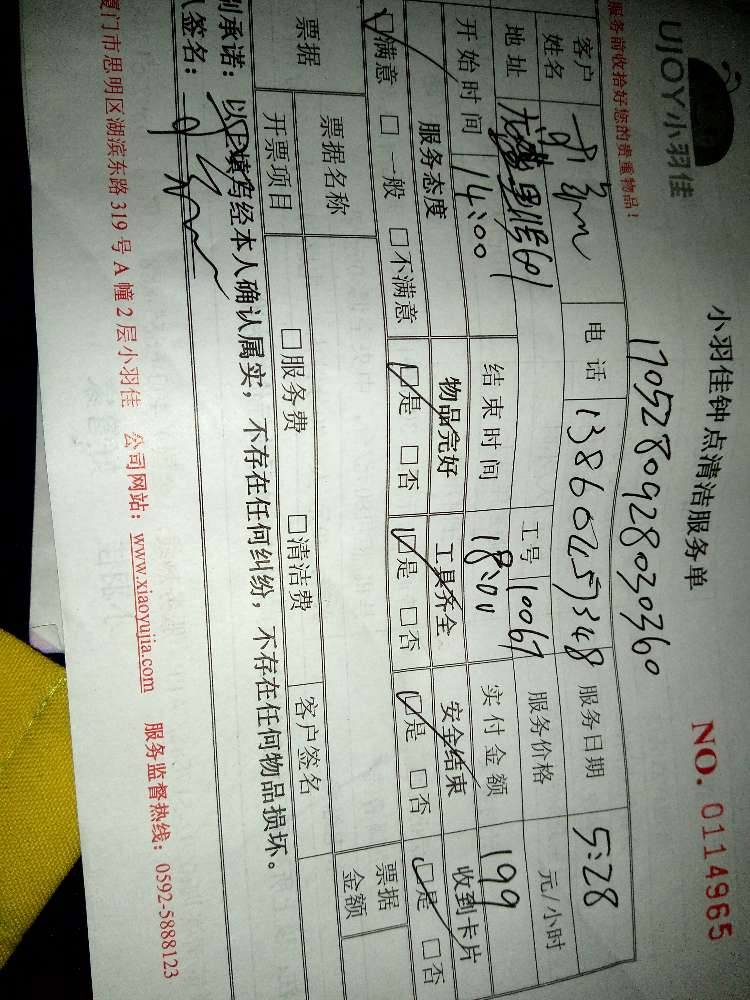 UJOY小羽佳
小羽佳钟点清洁服务单
NO. 0114965
1705280928030360
服务前收拾好您的贵重物品!
客户姓名 电话 13860457348 服务日期 5:28
地址 601 工号 10067 服务价格 元/小时
开始时间 14:00 结束时间 18:00 实付金额 199
服务态度 物品完好 工具齐全 安全结束 收到卡片
□满意 □一般 □不满意 □是 □否 □是 □否 □是 □否 □是 □否
票据 票据名称 票据金额
开票项目 □服务费 □清洁费 客户签名
别承诺:以上填写经本人确认属实,不存在任何纠纷,不存在任何物品损坏。
签名:
厦门市思明区湖滨东路319号A幢2层小羽佳 公司网站:www.xiaoyujia.com 服务监督热线:0592-5888123